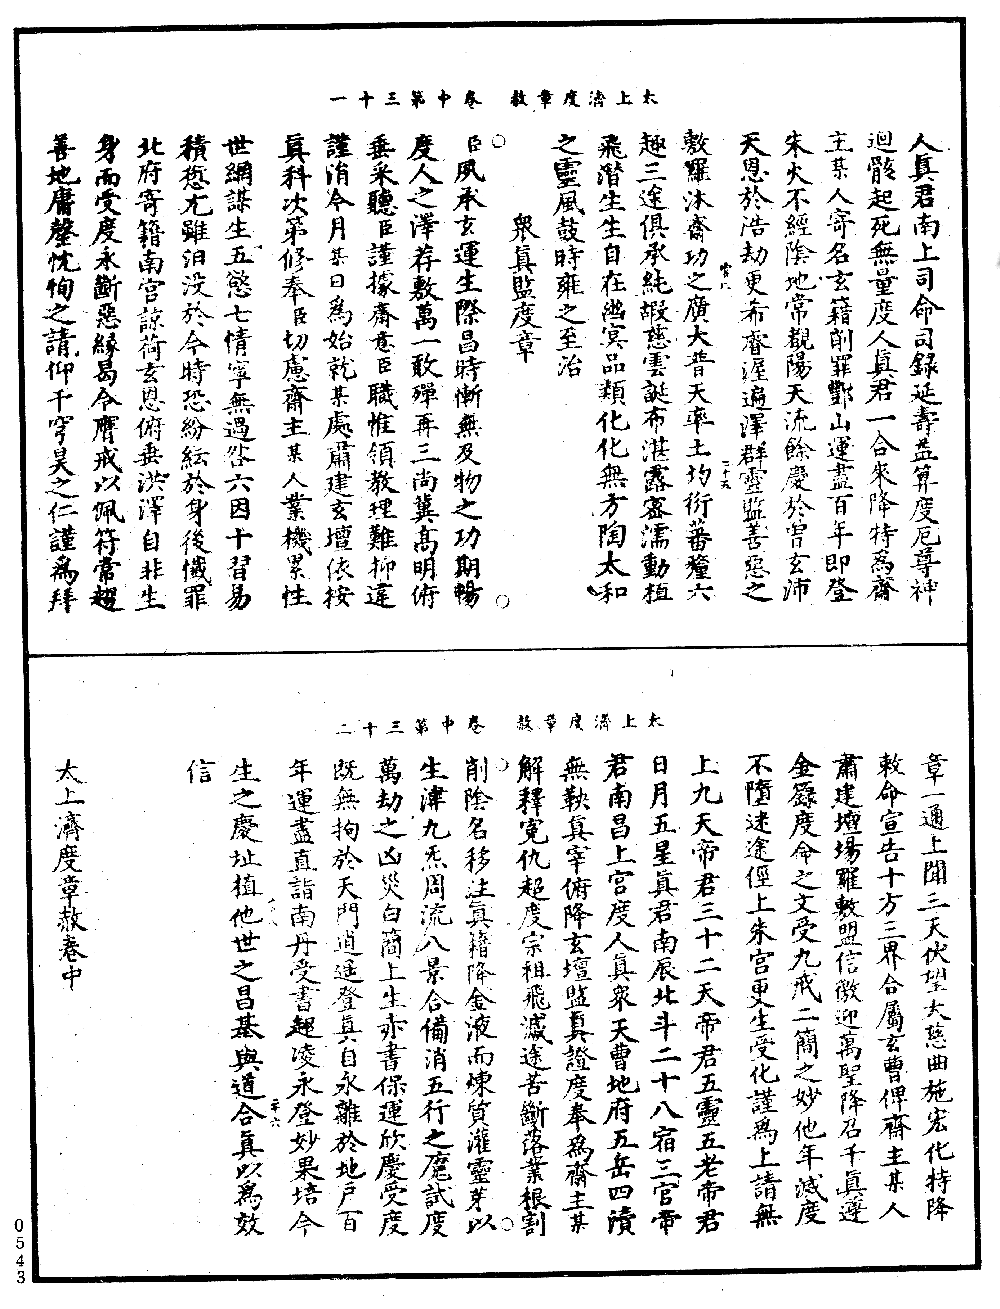 太上濟度章赦　卷中第三十一
人真君南上司命司錄延壽益算度厄尊神
迴骸起死無量度人真君一合來降特為齋
主某人寄名玄籍削罪酆山運盡百年即登
朱火不經陰地常觀陽天流餘慶於雲玄沛
天恩於浩劫更希齊渥遍澤群靈監善惡之
敷羅沐齋功之廣大普天率土均衍蕃釐六
趣三途俱承純嘏慈雲誕布湛露密濡動植
飛潛生生自在幽冥品類化化無方陶太和
之靈風鼓時雍之至治
眾真監度章
臣夙承玄運生際昌時慚無及物之功期暢
度人之澤荐敷萬一敢殫再三尚冀高明俯
垂采聽臣謹據齋意臣職惟領教理難抑違
謹涓今月某日為始就某處肅建玄壇依按
真科次第修奉臣切慮齋主某人業機累性
世網謀生五慾七情寧無過咎六因十習易
積愆尤雖汨没於今時恐紛紜於身後懺罪
北府寄籍南宮諒荷玄恩俯垂洪澤自非生
身而受度永斷惡緣曷令膺戒以佩符常超
善地庸罄忱恂之請仰干穹昊之仁謹為拜
太上濟度章赦　卷中第三十二
章一通上聞三天伏望大慈曲施宏化特降
敕命宣告十方三界合屬玄曹俾齋主某人
肅建壇場羅敷盟信徽迎萬聖降召千真遵
金籙度命之文受九戒二簡之妙他年滅度
不墮迷途徑上朱宮更生受化謹為上請無
上九天帝君三十二天帝君五靈五老帝君
日月五星真君南辰北斗二十八宿三官帝
君南昌上宮度人真眾天曹地府五岳四瀆
無鞅真宰俯降玄壇監真證度奉為齋主某
解釋冤仇超度宗祖飛滅途苦斷落業根割
削陰名移注真籍降金液而煉質灌靈芽以
生津九炁周流八景合備消五行之魔試度
萬劫之凶災白簡上生赤書保運欣慶受度
既無拘於天門逍遥登真自永離於地戶百
年運盡直詣南丹受書超凌永登妙果培今
生之慶址植他世之昌基與道合真以為效
信
太上濟度章赦卷中
0543